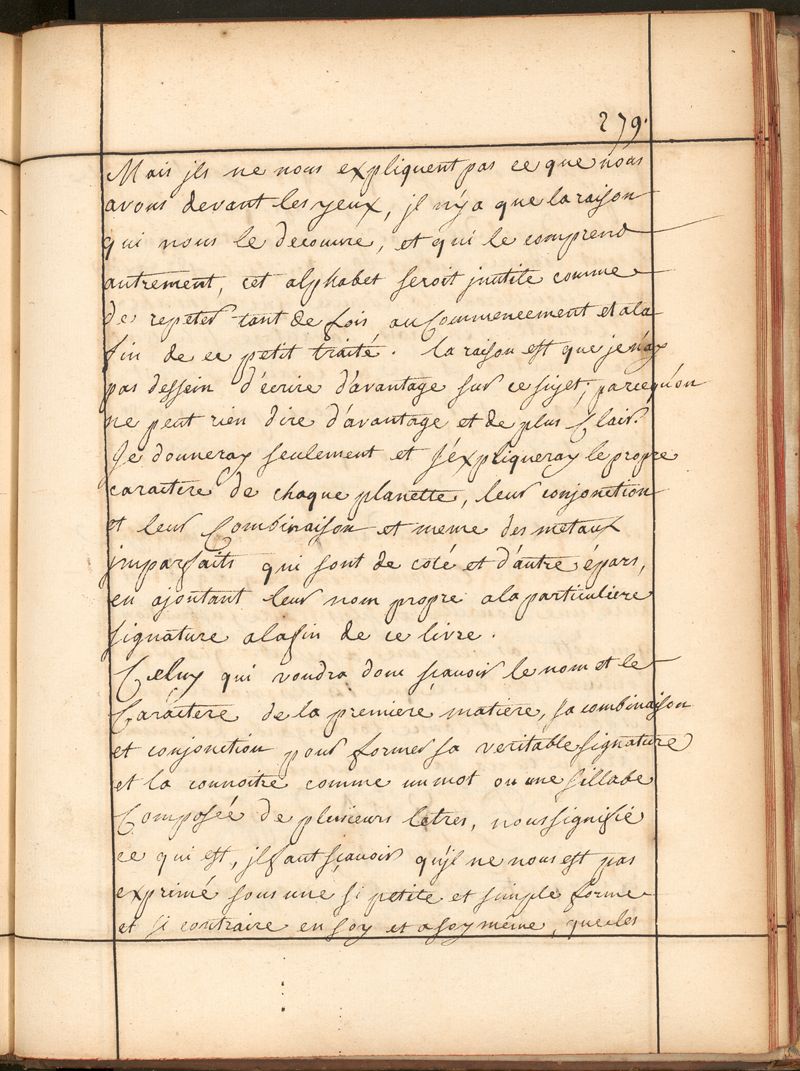 279.
Mais jls ne nous expliquent pas ce que nous
avons devant les yeux, jl n'ya que la raison
qui nous le decouvre, et qui le comprend
autrement, cet alphabet seroit jnutile comme
de repeter tant de fois au Commencement et ala
fin de ce petit traité. la raison est que je n'ay
pas dessein d'écrire d'avantage sur ce sujet; parcequ'on
ne peut rien dire d'avantage et de plus Clair.
Je donneray seulement et j'expliqueray le propre
caractere de chaque planette, leur conjonction
et leur Combinaison et meme des metaux
jmparfaits qui sont de coté et d'autre épars,
en ajoutant leur nom propre ala particuliere
signature alafin de ce livre.
Celuy qui voudra donc sçavoir le nom et le
Caractere de la premiere matiere, sa combinaison
et conjonction pour former sa veritable signature
et la connoitre comme un mot ou une sillabe
Composée de plusieurs letres, nous signifie
ce qui est, jl faut sçavoir qu'jl ne nous est pas
exprimé sous une si petite et simple forme
et si contraire en soy et asoy meme, que les